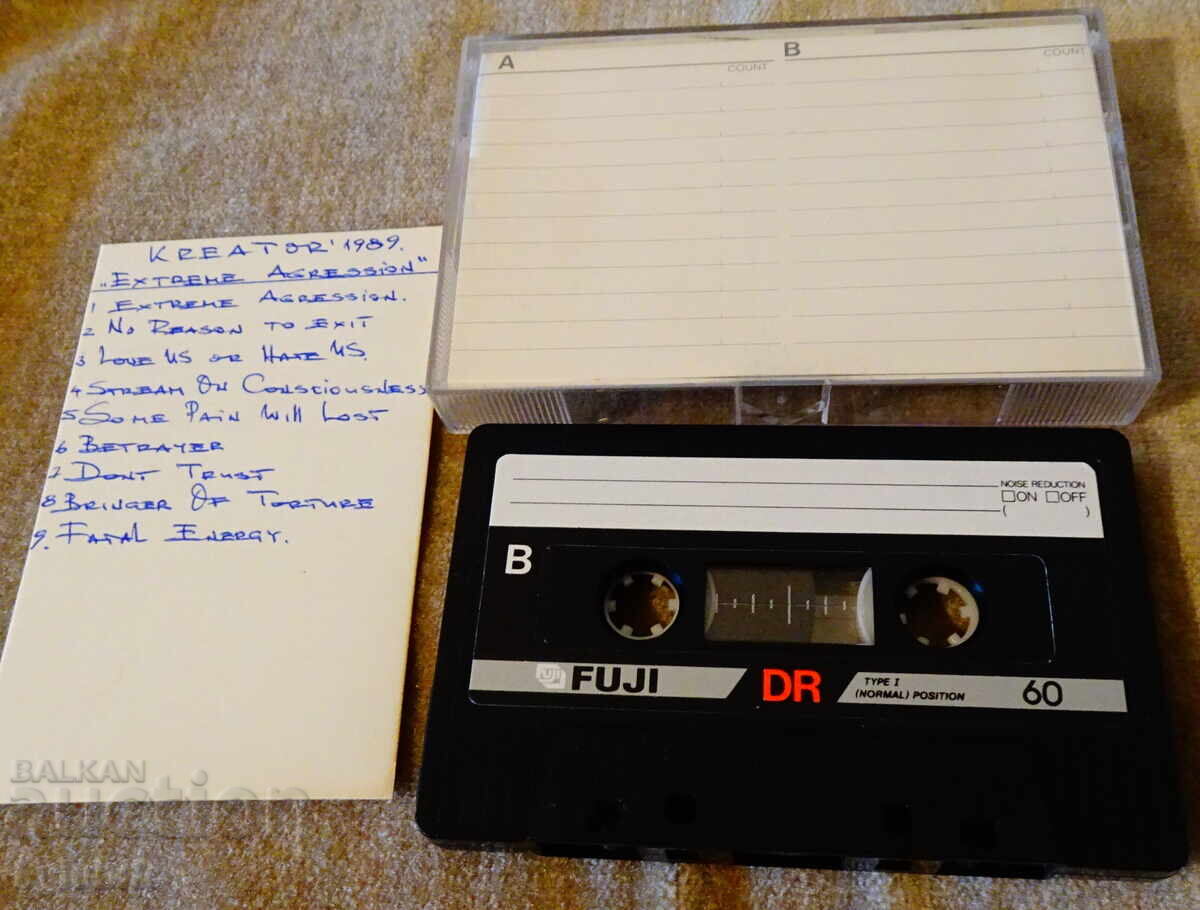 KREATOR' 1989.
„EXTREME AGRESSION"
1 EXTREME AGRESSION.
2 NO REASON TO EXIT
3 LOVE US OR HATE US.
4 STREAM ON CONSCIOUSNESS
5 SOME PAIN WILL LOST
6 BETRAYER
7 DONT TRUST
8 BRINGER OF TORTURE
9. FATAL ENERGY.
A COUNT B COUNT
NOISE REDUCTION
ON OFF
( )
B
FUJI FUJI DR TYPE I (NORMAL) POSITION 60
BALKAN
auction